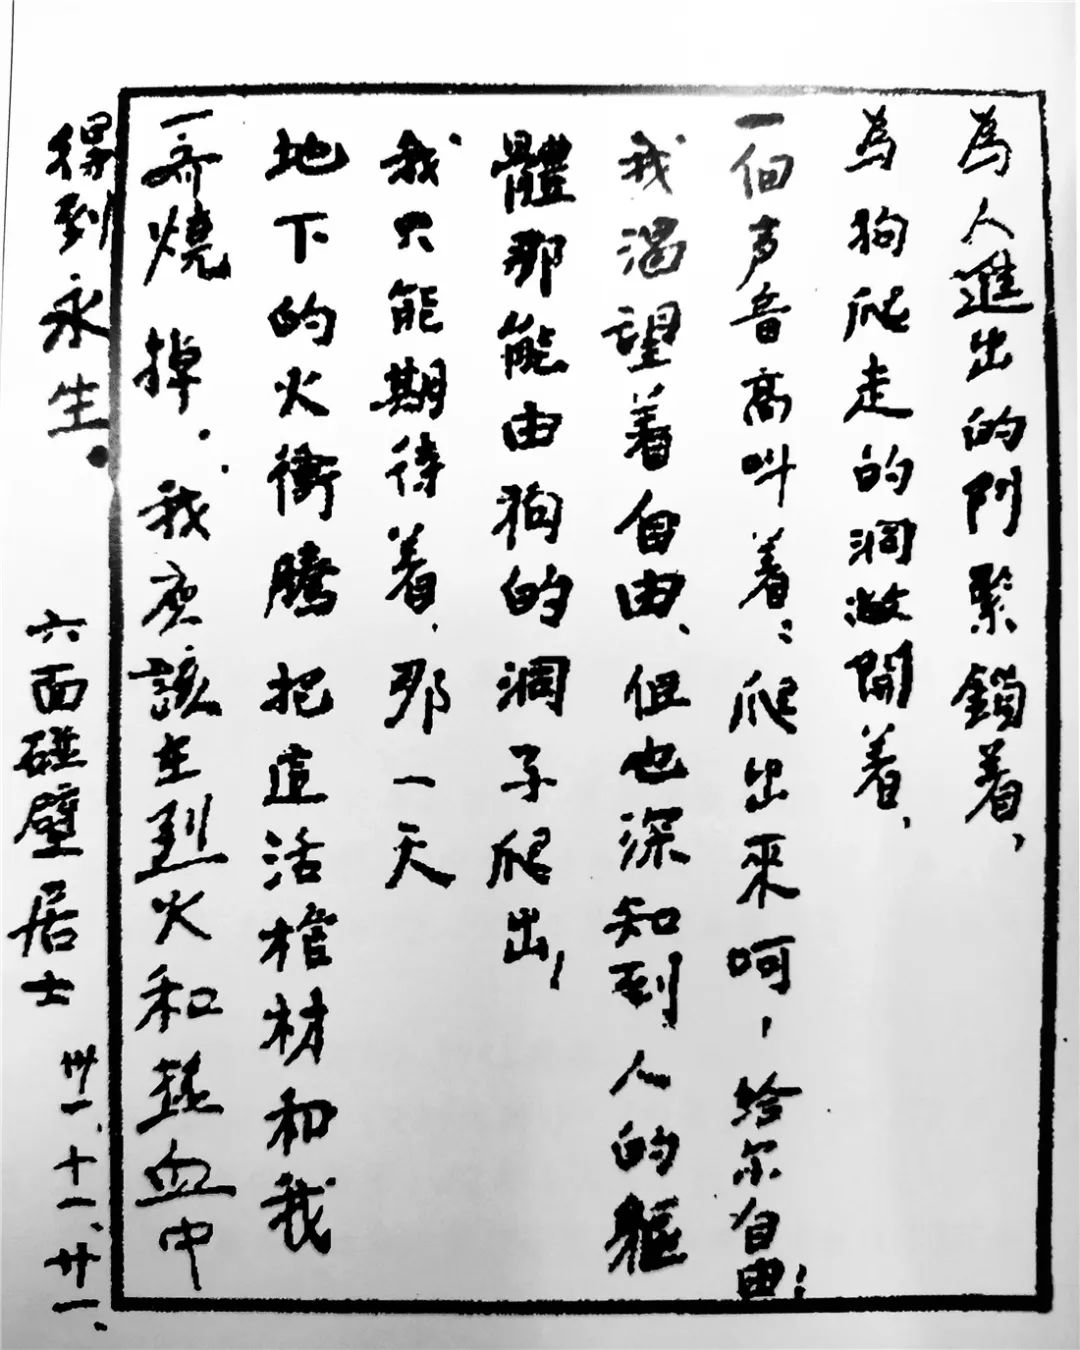 為人進出的門緊鎖着，
為狗爬走的洞敞開着，
一個声音高叫着：爬出來呵，給尔自由！
我渴望着自由、但也深知到人的軀
體那能由狗的洞子爬出！
我只能期待着，那一天
地下的火衝騰把這活棺材和我
一齊燒掉。我应該在烈火和熱血中
得到永生。
六面碰壁居士 卅一、十一、廿一、